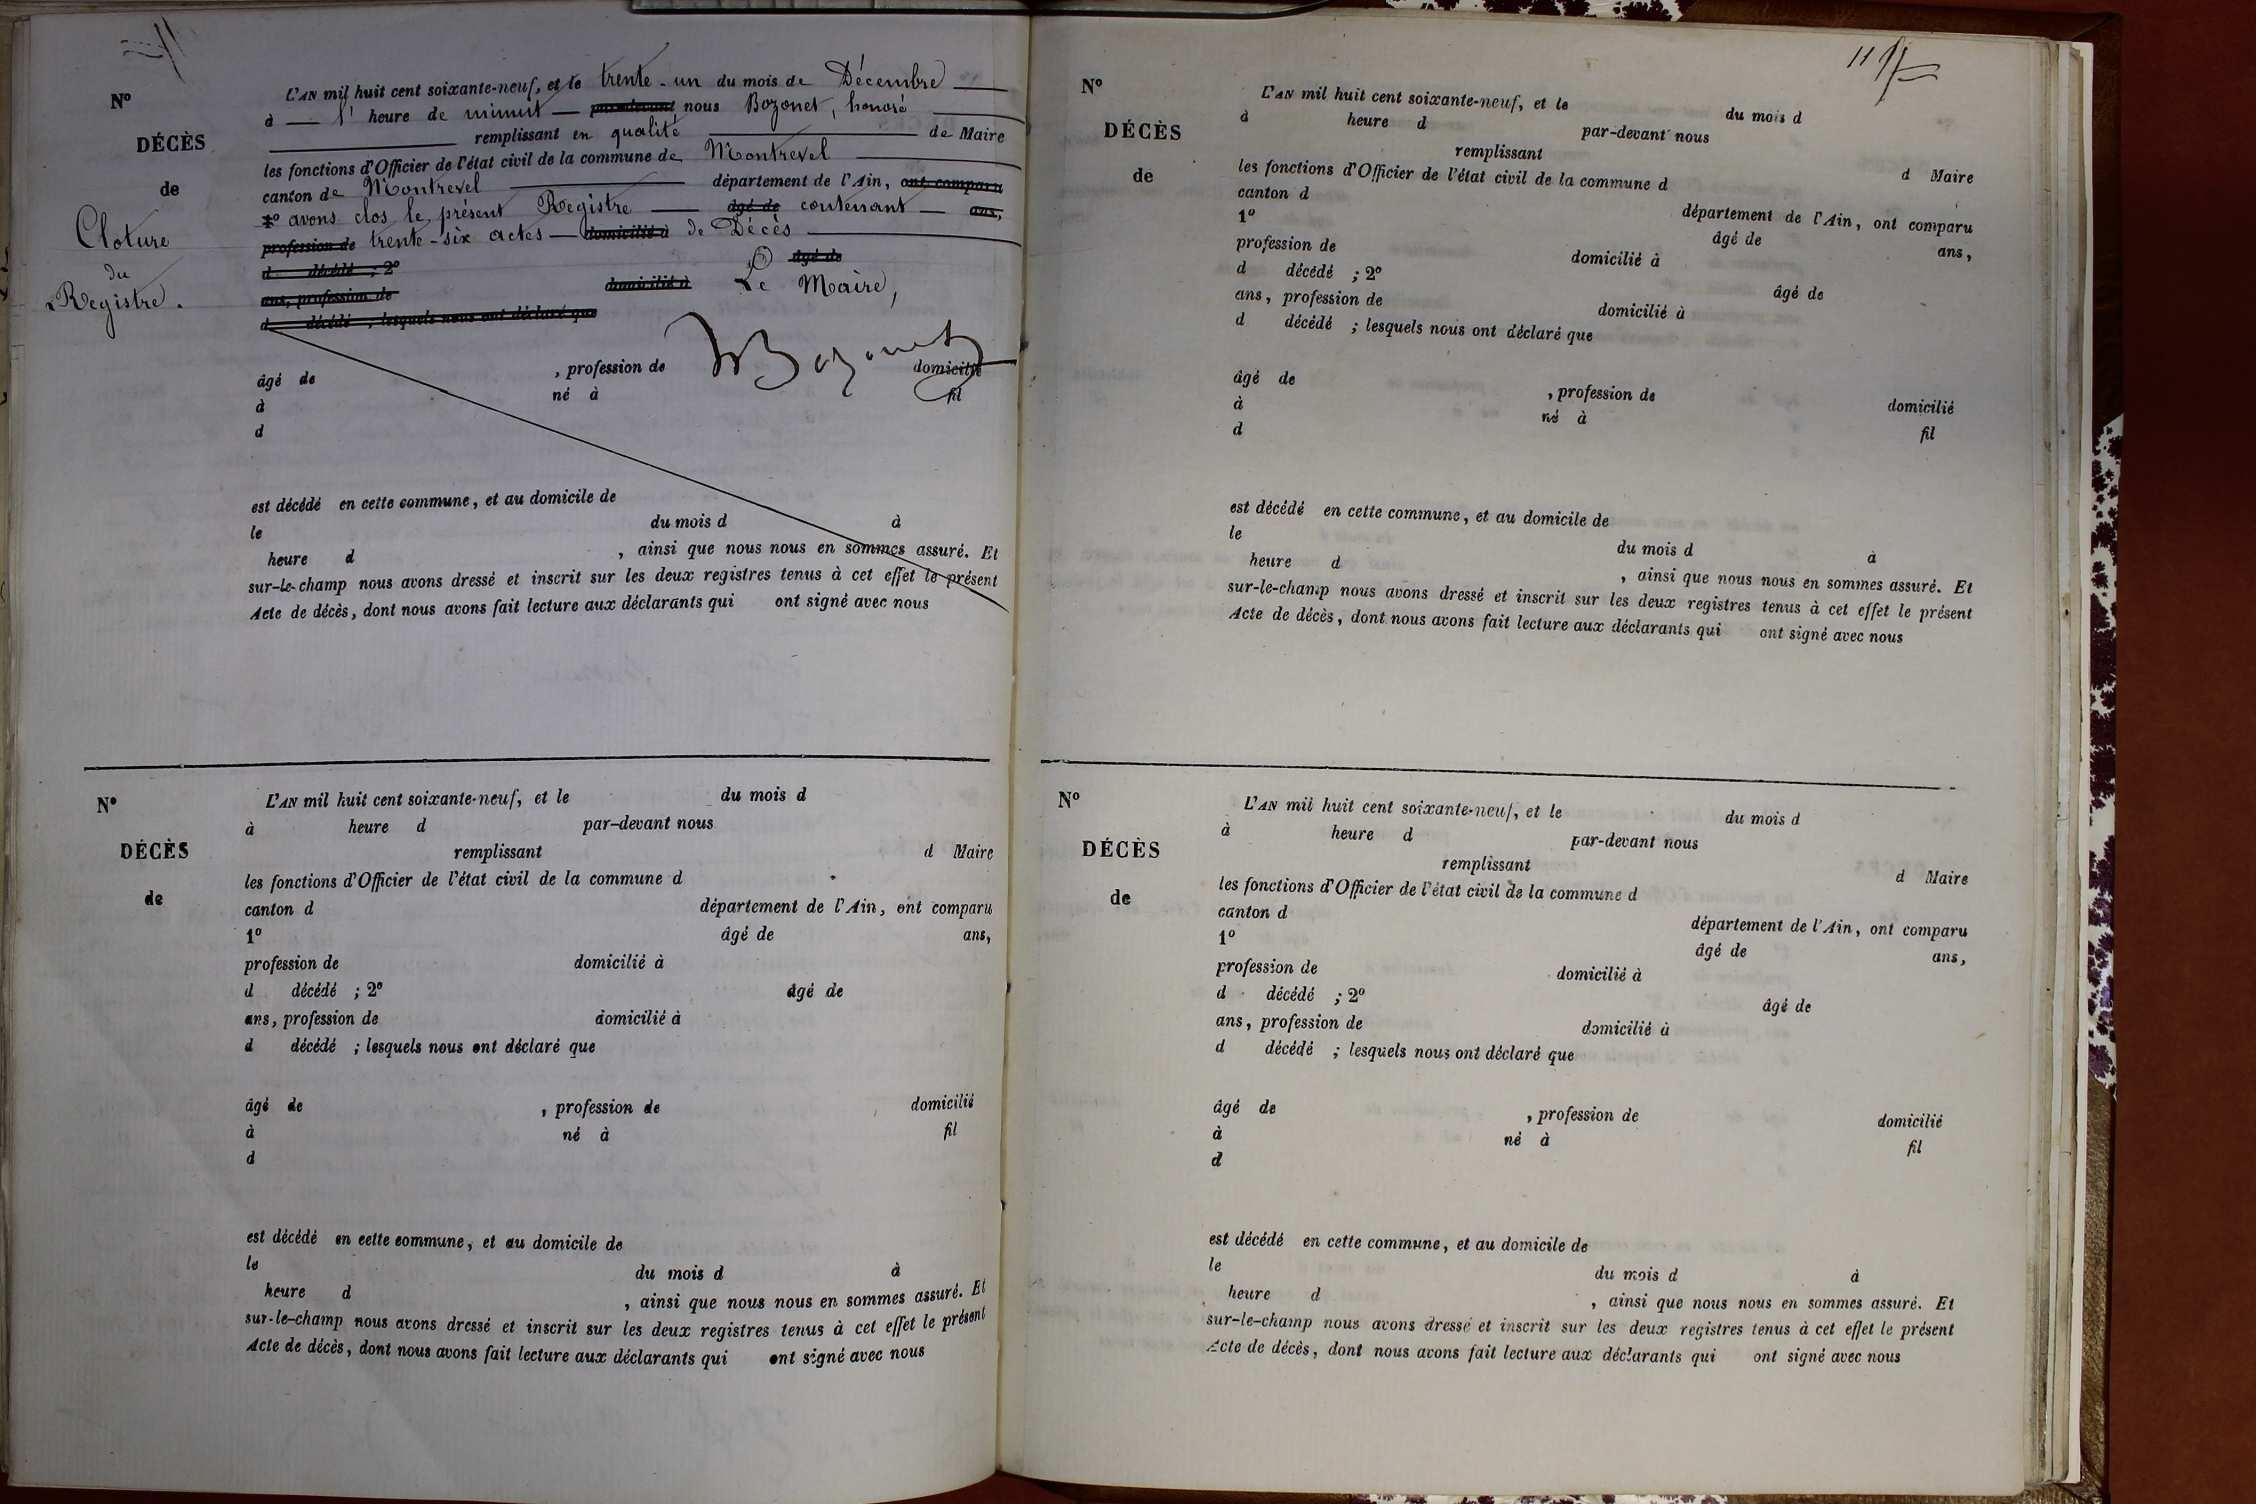 Nº
DÉCÈS
de
Cloture
du
Registre.
L'AN mil huit cent soixante-neuf, et le trente-un du mois de Décembre
à l' heure de minuit par-devant nous Bozonet, honoré
remplissant en qualité de Maire
les fonctions d'Officier de l'état civil de la commune de Montrevel
canton de Montrevel département de l'Ain, ont comparu
1º avons clos le présent Registre âgé de contenant ans,
profession de trente-six actes domicilié à de Décès
d décédé ; 2º âgé de
ans, profession de domicilié à Le Maire,
d décédé , lesquels nous ont déclaré que
Bozonet
âgé de , profession de domicilié
à né à fil
d
est décédé en cette commune, et au domicile de
le du mois d à
heure d , ainsi que nous nous en sommes assuré. Et
sur-le-champ nous avons dressé et inscrit sur les deux registres tenus à cet effet le présent
Acte de décès, dont nous avons fait lecture aux déclarants qui ont signé avec nous
Nº
DÉCÈS
de
L'AN mil huit cent soixante-neuf, et le du mois d
à heure d par-devant nous
remplissant d Maire
les fonctions d'Officier de l'état civil de la commune d
canton d département de l'Ain, ont comparu
1º âgé de ans,
profession de domicilié à
d décédé ; 2º âgé de
ans, profession de domicilié à
d décédé ; lesquels nous ont déclaré que
âgé de , profession de domicilié
à né à fil
d
est décédé en cette commune, et au domicile de
le du mois d à
heure d , ainsi que nous nous en sommes assuré. Et
sur-le-champ nous avons dressé et inscrit sur les deux registres tenus à cet effet le présent
Acte de décès, dont nous avons fait lecture aux déclarants qui ont signé avec nous
Nº
DÉCÈS
de
L'AN mil huit cent soixante-neuf, et le du mois d
à heure d par-devant nous
remplissant d Maire
les fonctions d'Officier de l'état civil de la commune d
canton d département de l'Ain, ont comparu
1º âgé de ans,
profession de domicilié à
d décédé ; 2º âgé de
ans, profession de domicilié à
d décédé ; lesquels nous ont déclaré que
âgé de , profession de domicilié
à né à fil
d
est décédé en cette commune, et au domicile de
le du mois d à
heure d , ainsi que nous nous en sommes assuré. Et
sur-le-champ nous avons dressé et inscrit sur les deux registres tenus à cet effet le présent
Acte de décès, dont nous avons fait lecture aux déclarants qui ont signé avec nous
Nº
DÉCÈS
de
L'AN mil huit cent soixante-neuf, et le du mois d
à heure d par-devant nous
remplissant d Maire
les fonctions d'Officier de l'état civil de la commune d
canton d département de l'Ain, ont comparu
1º âgé de ans,
profession de domicilié à
d décédé ; 2º âgé de
ans, profession de domicilié à
d décédé ; lesquels nous ont déclaré que
âgé de , profession de domicilié
à né à fil
d
est décédé en cette commune, et au domicile de
le du mois d à
heure d , ainsi que nous nous en sommes assuré. Et
sur-le-champ nous avons dressé et inscrit sur les deux registres tenus à cet effet le présent
Acte de décès, dont nous avons fait lecture aux déclarants qui ont signé avec nous